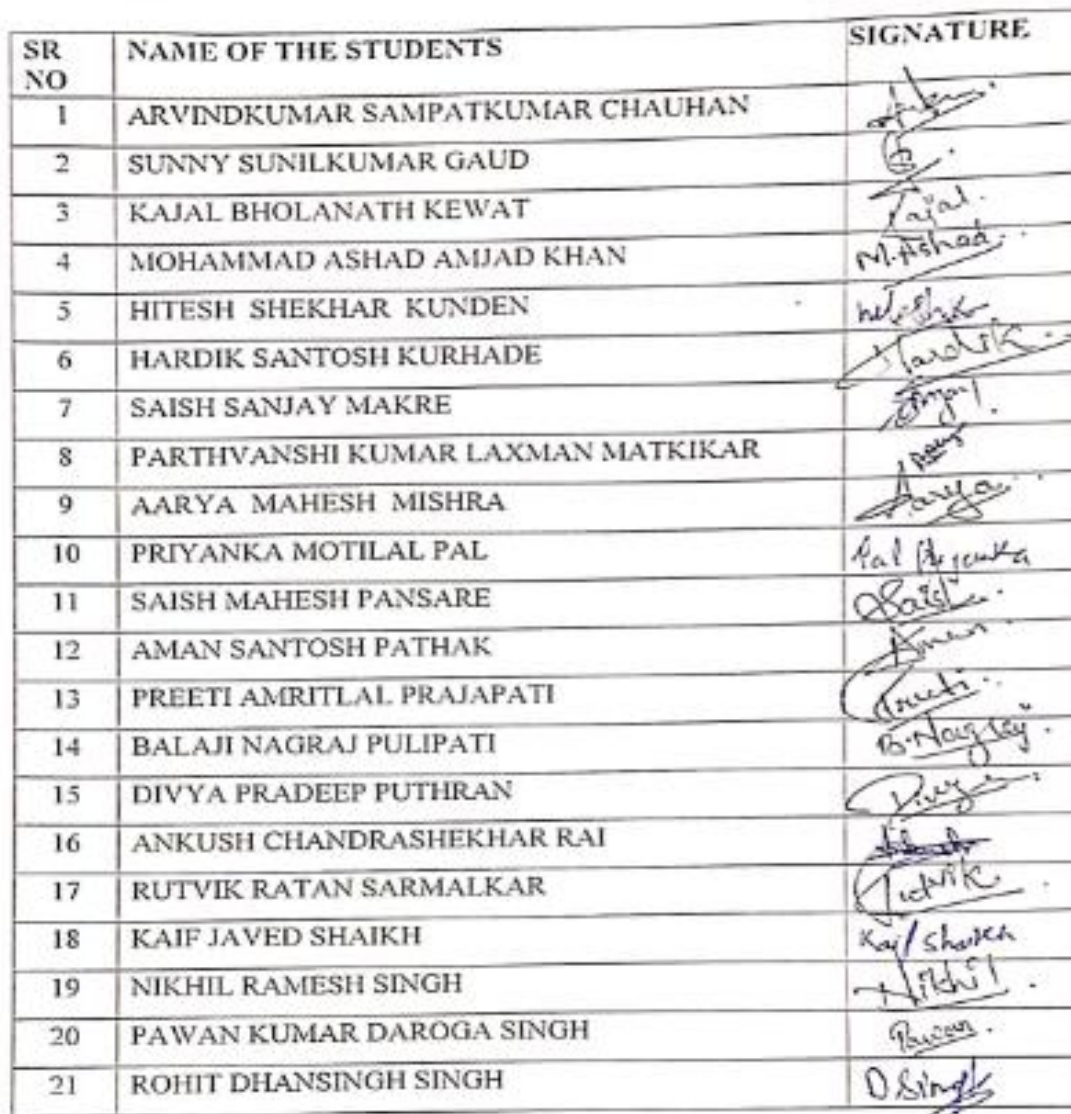 SR NO NAME OF THE STUDENTS SIGNATURE
1 ARVINDKUMAR SAMPATKUMAR CHAUHAN
2 SUNNY SUNILKUMAR GAUD
3 KAJAL BHOLANATH KEWAT Kajal.
4 MOHAMMAD ASHAD AMJAD KHAN M.Ashad.
5 HITESH SHEKHAR KUNDEN
6 HARDIK SANTOSH KURHADE Hardik
7 SAISH SANJAY MAKRE
8 PARTHVANSHI KUMAR LAXMAN MATKIKAR
9 AARYA MAHESH MISHRA Aarya
10 PRIYANKA MOTILAL PAL Pal Priyanka
11 SAISH MAHESH PANSARE Saish
12 AMAN SANTOSH PATHAK Aman
13 PREETI AMRITLAL PRAJAPATI Preeti
14 BALAJI NAGRAJ PULIPATI B.Nagraj
15 DIVYA PRADEEP PUTHRAN Divya
16 ANKUSH CHANDRASHEKHAR RAI
17 RUTVIK RATAN SARMALKAR Rutvik
18 KAIF JAVED SHAIKH Kaif Shaikh
19 NIKHIL RAMESH SINGH Nikhil
20 PAWAN KUMAR DAROGA SINGH Pawan.
21 ROHIT DHANSINGH SINGH D Singh